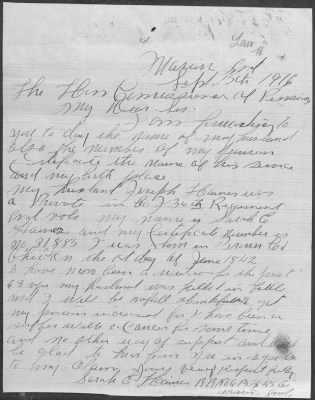 Law
Marion Ind
Sept 5th 1916
The Hon Comissioner of Pensions
My Dear Sir
I am furnishing to
you to day the name of my husband
also the number of my Pension
Certificate the nature of his service
and my birth place
My husband Joseph Haines was
a Private in Co I 34th Regiment
Ind vols my name is Sarah E
Haines and my Certificate number is
No 31,883 I was born in Brown Co
Ohio on the day of June 1842
I have now been a widow for the past
63 yrs my husband was killed in battle
and I will be verry thankful to get
my pension increased for I have been a
suffer with a cancer for some time
and no other way of support and will
be glad to hear from you in regard
to my claim yours verry Respectfully
Sarah E Haines R.R. No 6 Box 45
Marion Ind